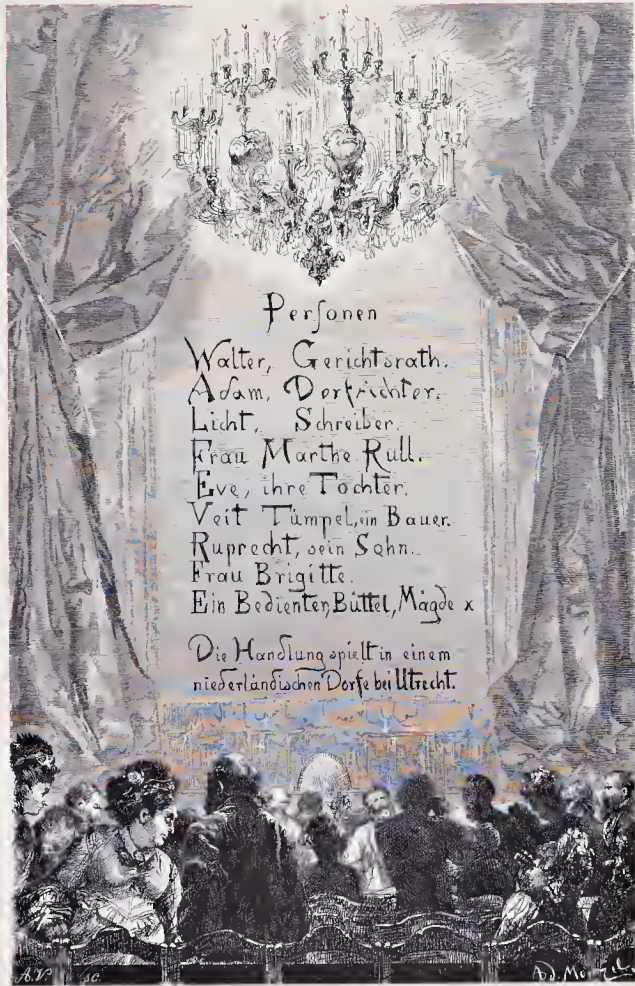 Personen
Walter, Gerichtsrath.
Adam, Dorfrichter.
Licht, Schreiber.
Frau Marthe Rull.
Eve, ihre Tochter.
Veit Tümpel, ein Bauer.
Ruprecht, sein Sohn.
Frau Brigitte.
Ein Bedienter, Büttel, Mägde x
Die Handlung spielt in einem
niederländischen Dorfe bei Utrecht.
A.V. sc.
Ad.